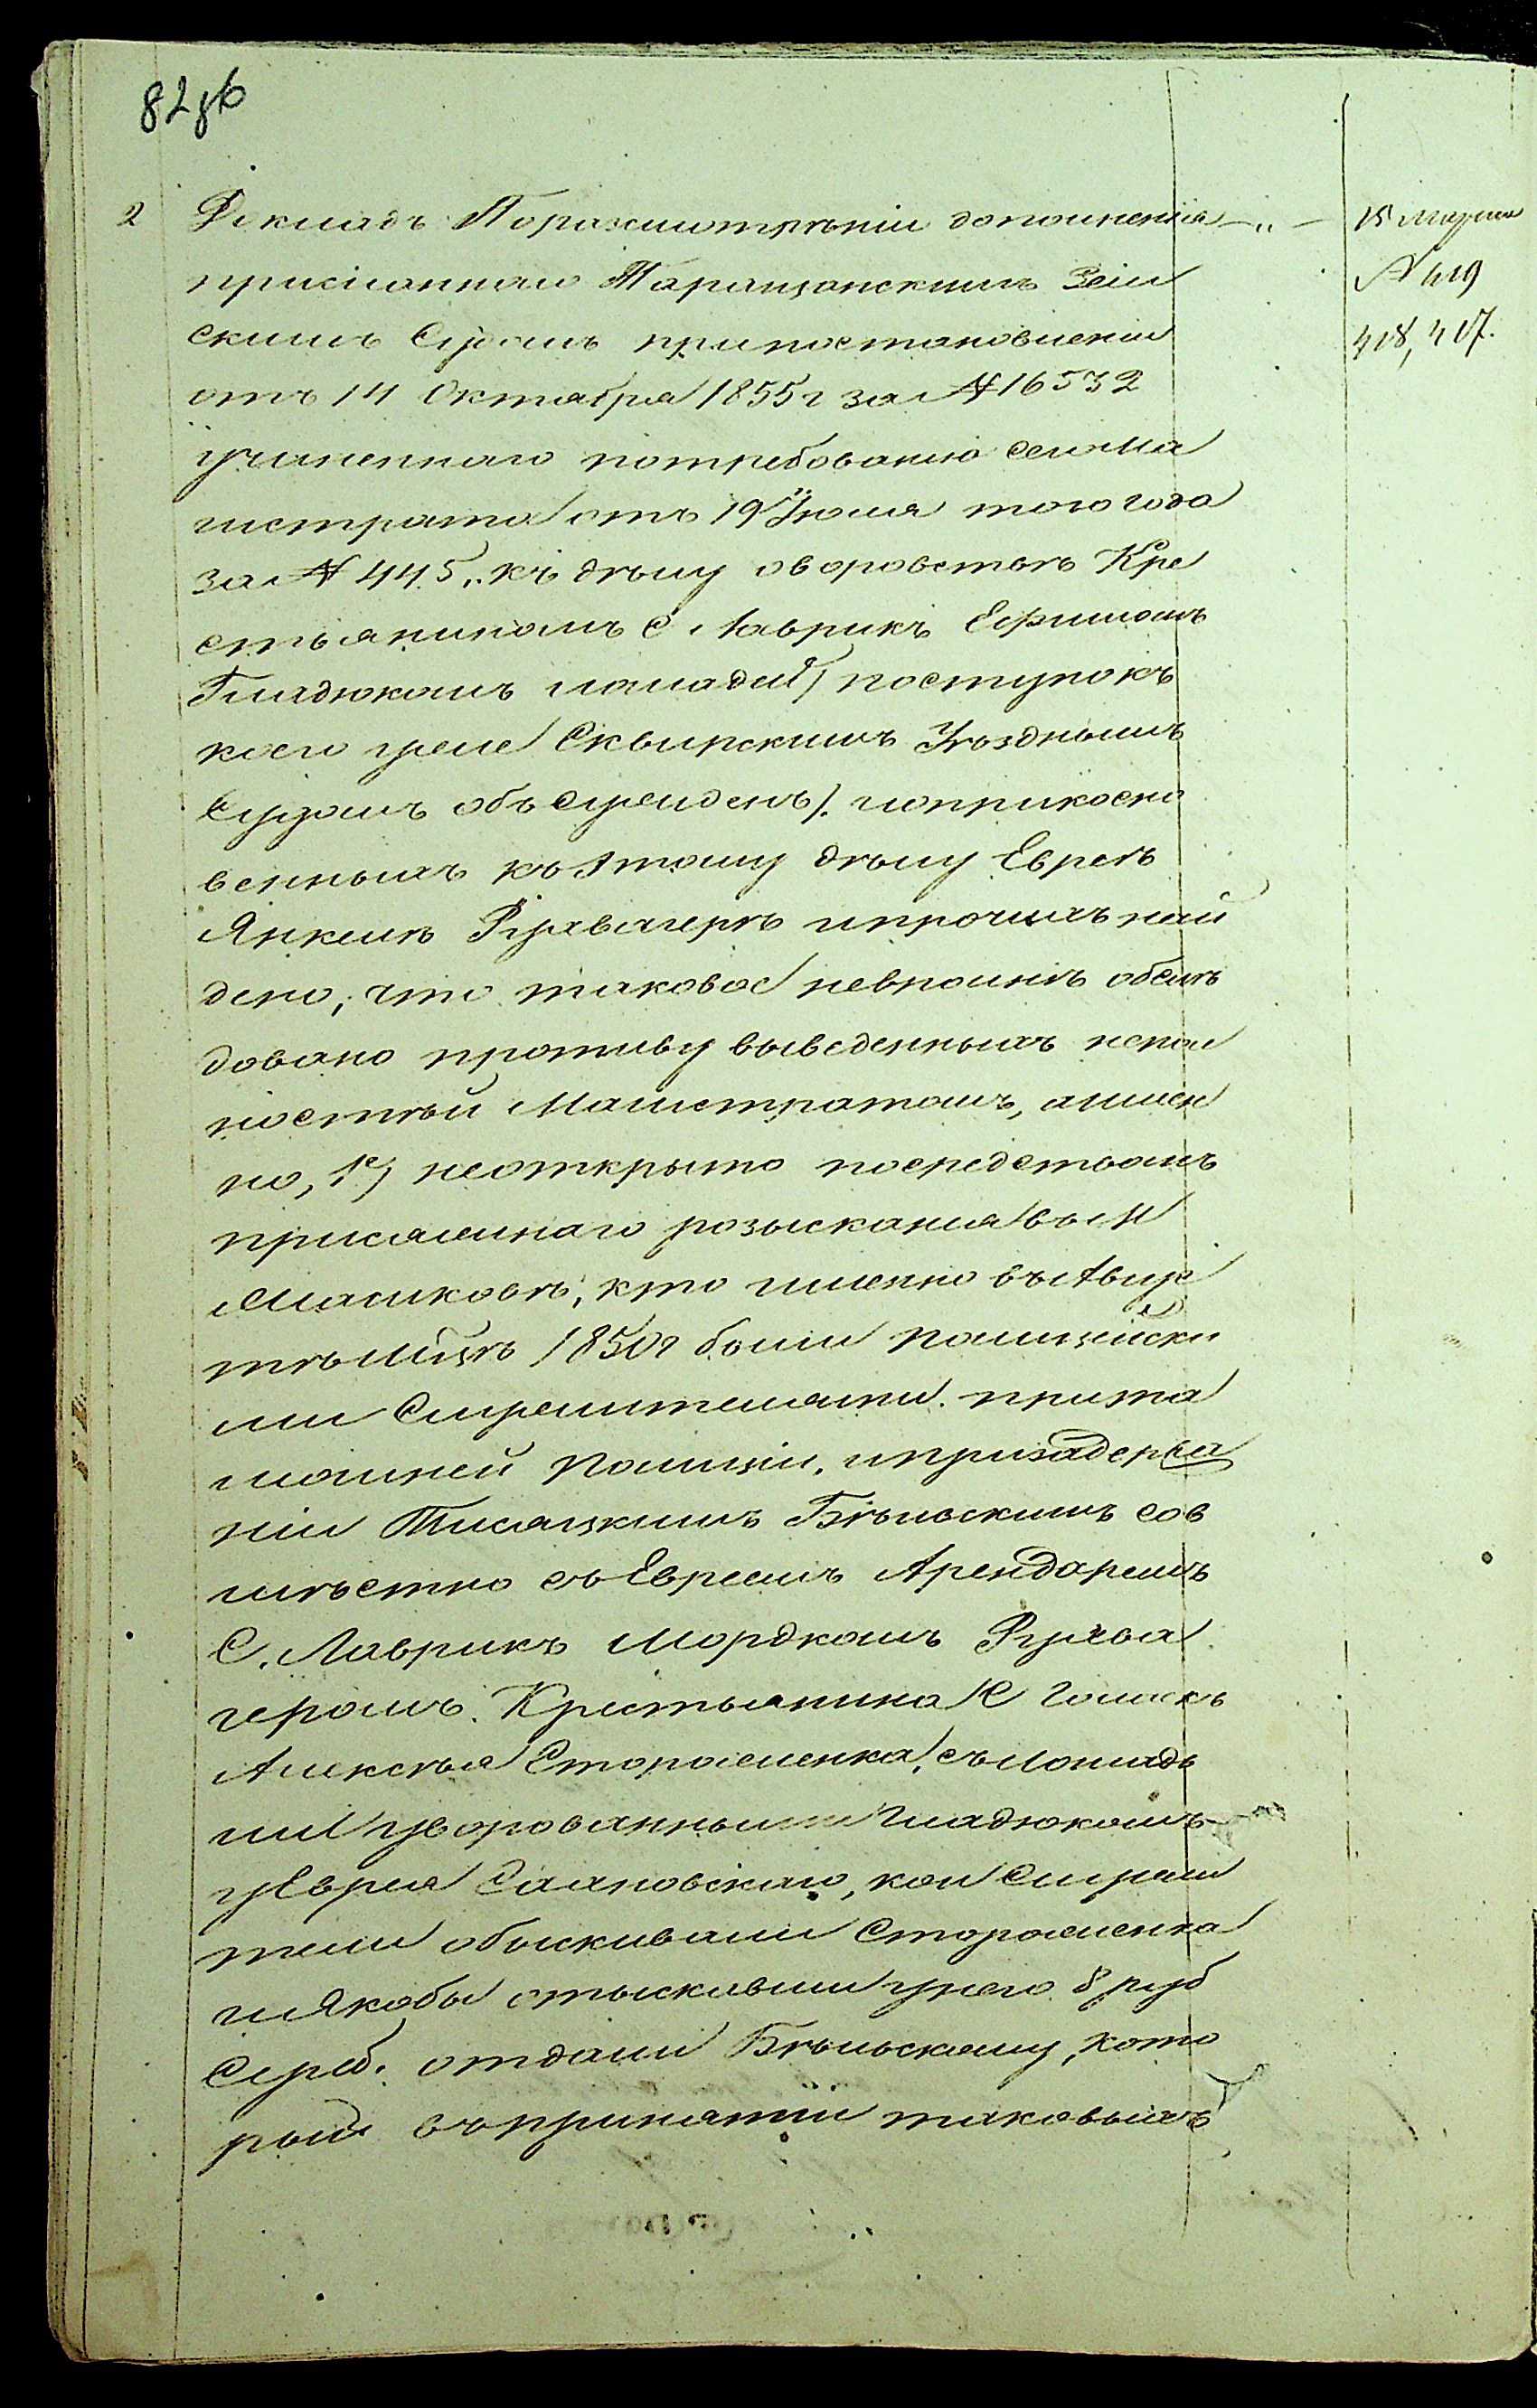 82 об
2 Докладъ. По разсмотрѣніи дополненія —„—
присланнаго Таращанскимъ Зем
скимъ Судомъ при постановленіи
отъ 14 Октября 1855 г за № 16532
учиненнаго по требованію сего Ма
гистрата отъ 19 Іюля того года
за № 445. къ дѣлу о воровствѣ Кре
стьяниномъ С. Лаврикъ Ефимомъ
Гладюкомъ лошадей / поступокъ
коего уже Сквирскимъ Уѣзднымъ
Судомъ обсужденъ /. и о прикосно
венныхъ къ этому дѣлу Евреѣ
Янкелѣ и прочихъ най
дено, что таковое не вполнѣ обслѣ
довано противу выведенныхъ непол
ностей Магистратомъ, а имен
но, 1е) не открыто посредствомъ
присяжнаго розысканія въ М
кто именно въ Авгу
тѣ М-цѣ 1850 г были Полицейски
ми Служителями при та
мошней Полиціи, и при задержа
ніи Тысяцкимъ Бѣльскимъ сов
мѣстно съ Евреемъ Арендаремъ
С. Лаврикъ Мордкомъ
геромъ. Крестьянина С
Алексѣя Стороженка, съ лошадь
ми уворованными Гладюкомъ
у Еврея кои Служи
тели обыскивали Стороженка
и якобы отыскавши у него 8 руб
Сереб. отдали Бѣльскому, кото
рый въ принятіи таковыхъ
15 Марта
№ 419
418, 417.